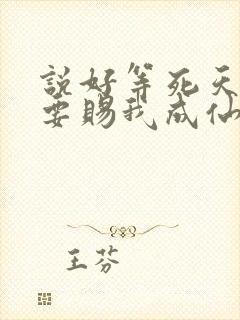 說好等死天
要賜我成仙
王芬